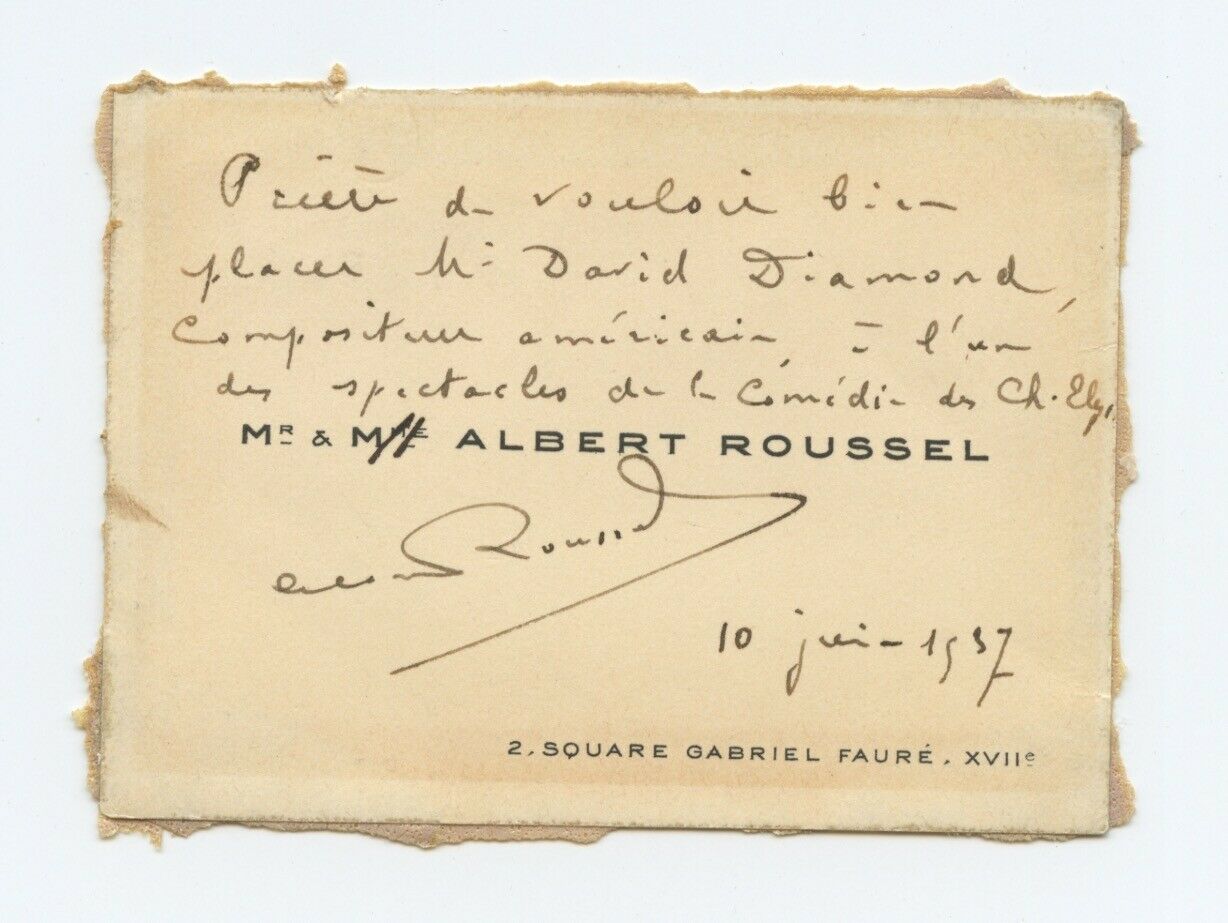 Prière de vouloir bien
placer Mr David Diamond,
compositeur américain, à l'un
des spectacles de la Comédie des Ch. Elys.
MR & MME ALBERT ROUSSEL
Albert Roussel
10 juin 1937
2, SQUARE GABRIEL FAURÉ, XVIIe